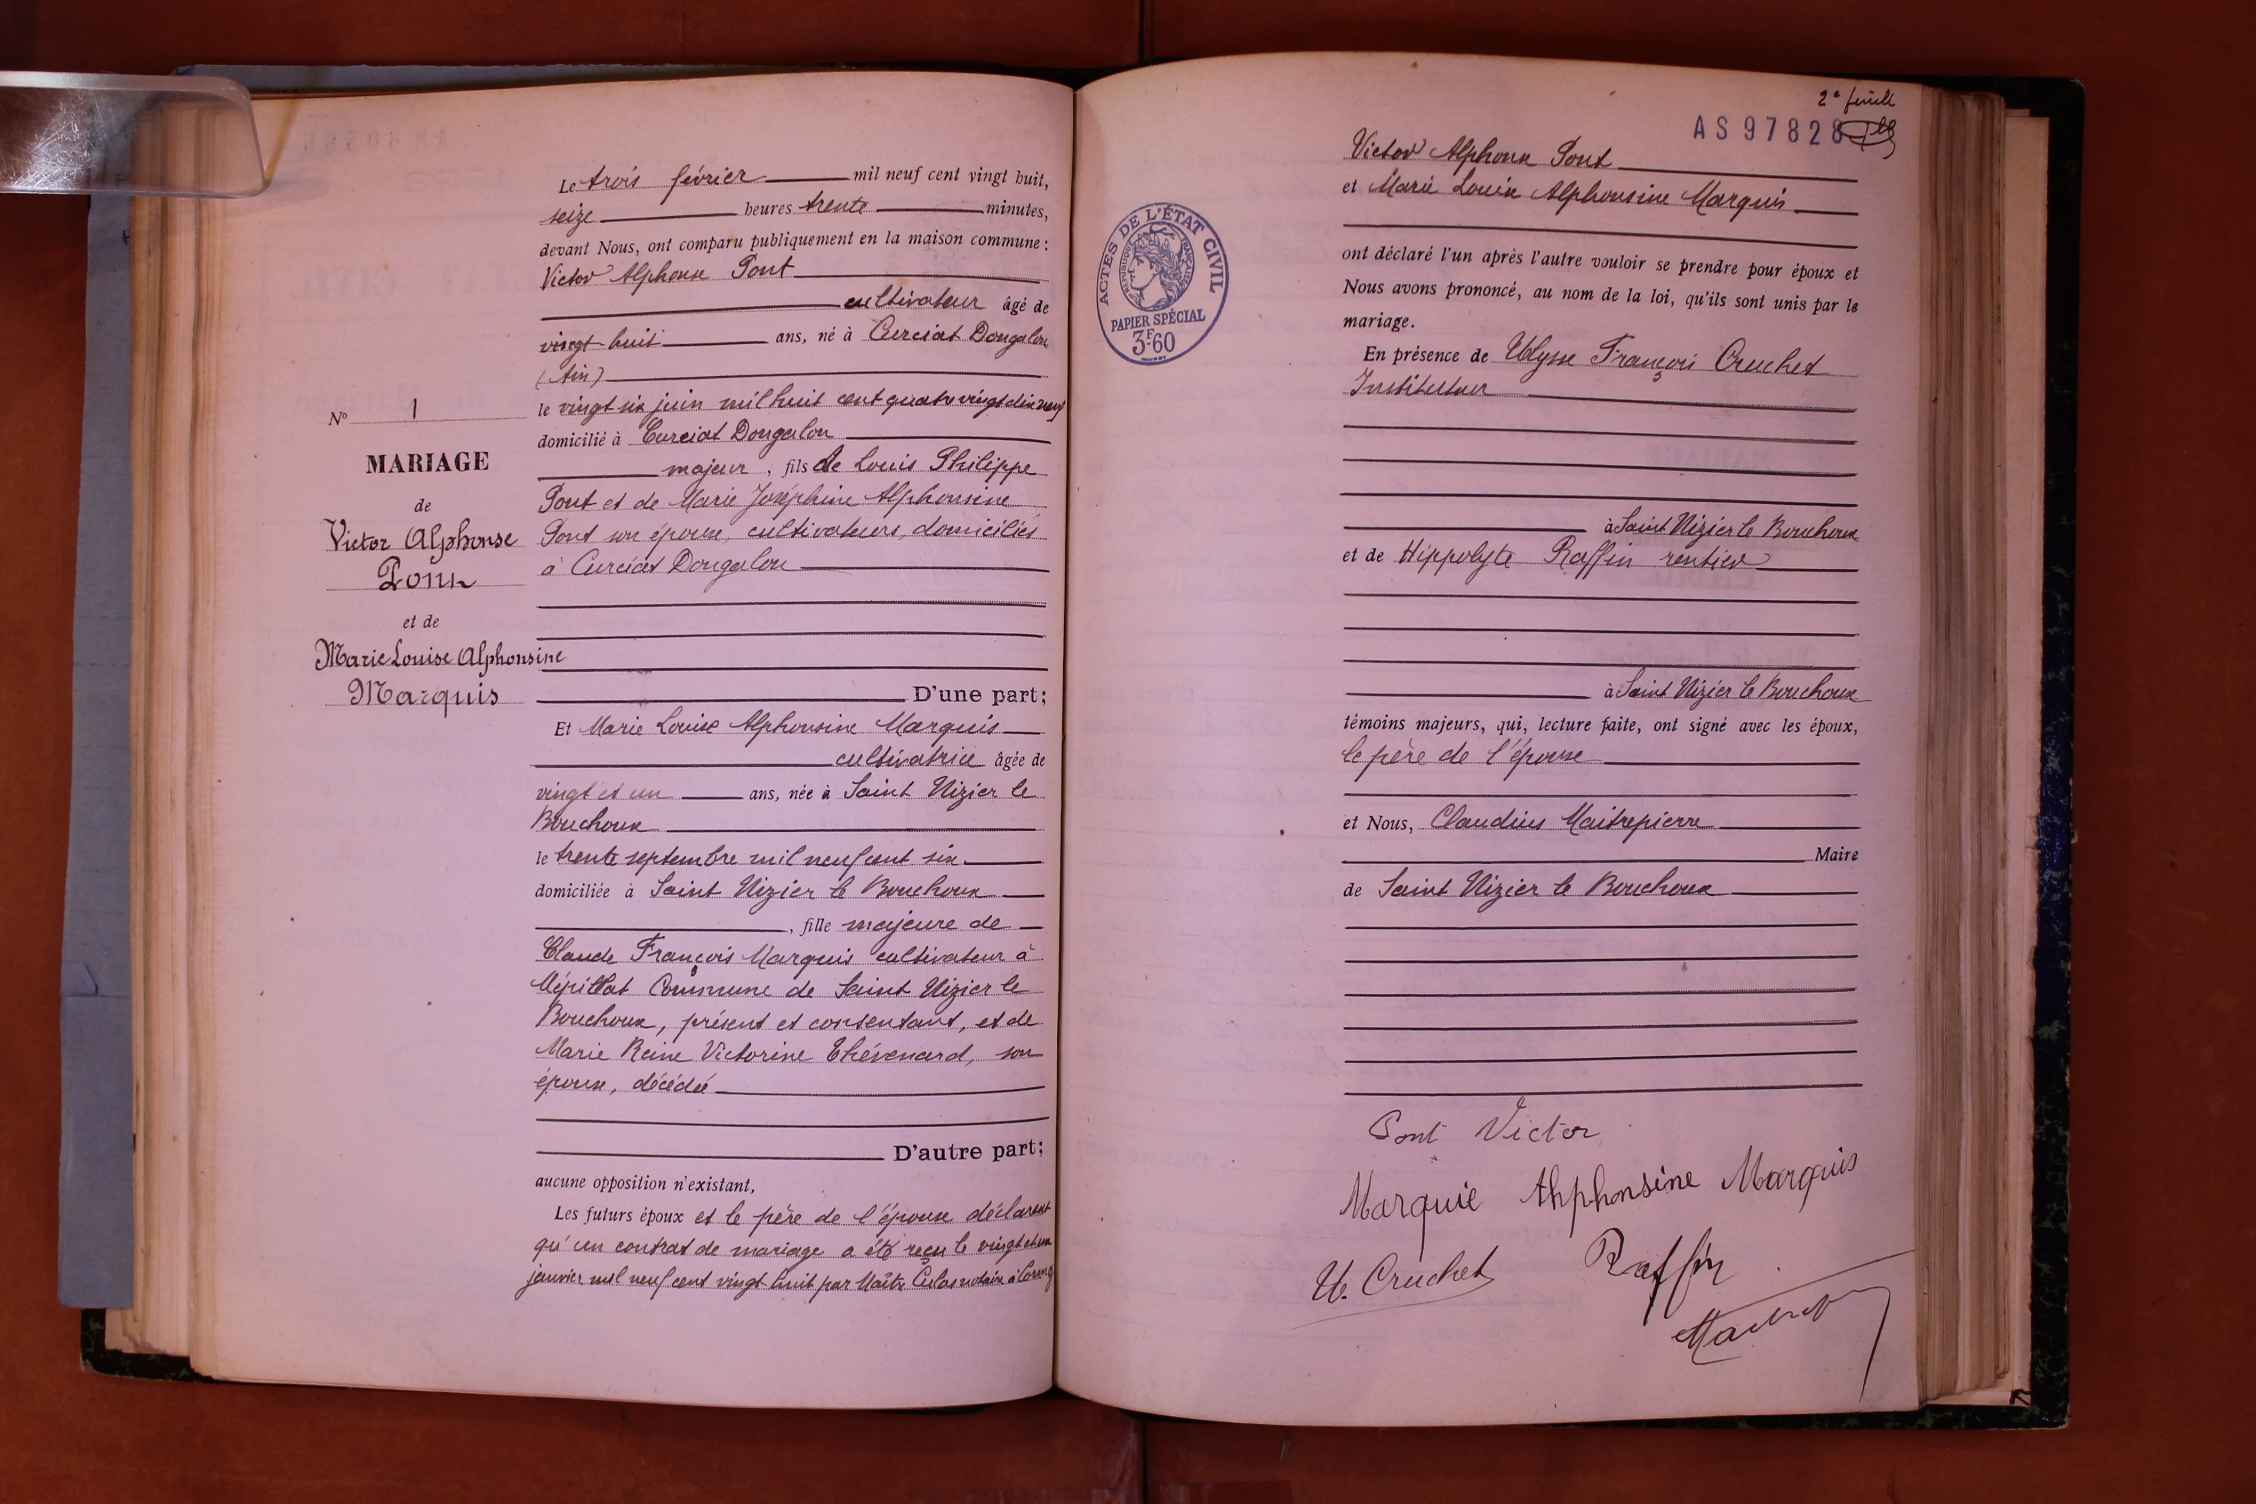 N° 1
MARIAGE
de
Victor Alphonse
Pont
et de
Marie Louise Alphonsine
Marquis
Le trois février mil neuf cent vingt huit,
seize heures trente minutes,
devant Nous, ont comparu publiquement en la maison commune :
Victor Alphonse Pont
cultivateur âgé de
vingt huit ans, né à Curciat Dongalon
(Ain)
le vingt six juin mil huit cent quatre vingt dix neuf
domicilié à Curciat Dongalon
majeur, fils de Louis Philippe
Pont et de Marie Joséphine Alphonsine
Pont son épouse, cultivateurs, domiciliés
à Curciat Dongalon
D'une part;
Et Marie Louise Alphonsine Marquis
cultivatrice âgée de
vingt et un ans, née à Saint Nizier le
Bouchoux
le trente septembre mil neuf cent six
domiciliée à Saint Nizier le Bouchoux
, fille majeure de
Claude François Marquis cultivateur à
Mépillat Commune de Saint Nizier le
Bouchoux, présent et consentant, et de
Marie Reine Victorine Thévenard, son
épouse, décédée
D'autre part;
aucune opposition n'existant,
Les futurs époux et le père de l'épouse déclarent
qu'un contrat de mariage a été reçu le vingt et un
janvier mil neuf cent vingt huit par Maître notaire à
2e feuille
AS 97828
ACTES DE L'ÉTAT CIVIL
RÉPUBLIQUE FRANÇAISE
PAPIER SPÉCIAL
3F60
Victor Alphonse Pont
et Marie Louise Alphonsine Marquis
ont déclaré l'un après l'autre vouloir se prendre pour époux et
Nous avons prononcé, au nom de la loi, qu'ils sont unis par le
mariage.
En présence de Ulysse François Cruchet
Instituteur
à Saint Nizier le Bouchoux
et de Hippolyte Raffin rentier
à Saint Nizier le Bouchoux
témoins majeurs, qui, lecture faite, ont signé avec les époux,
le père de l'épouse
et Nous, Claudius Maitrepierre
Maire
de Saint Nizier le Bouchoux
Pont Victor
Marquie Ahphonsine Marquis
U. Cruchet Raffin